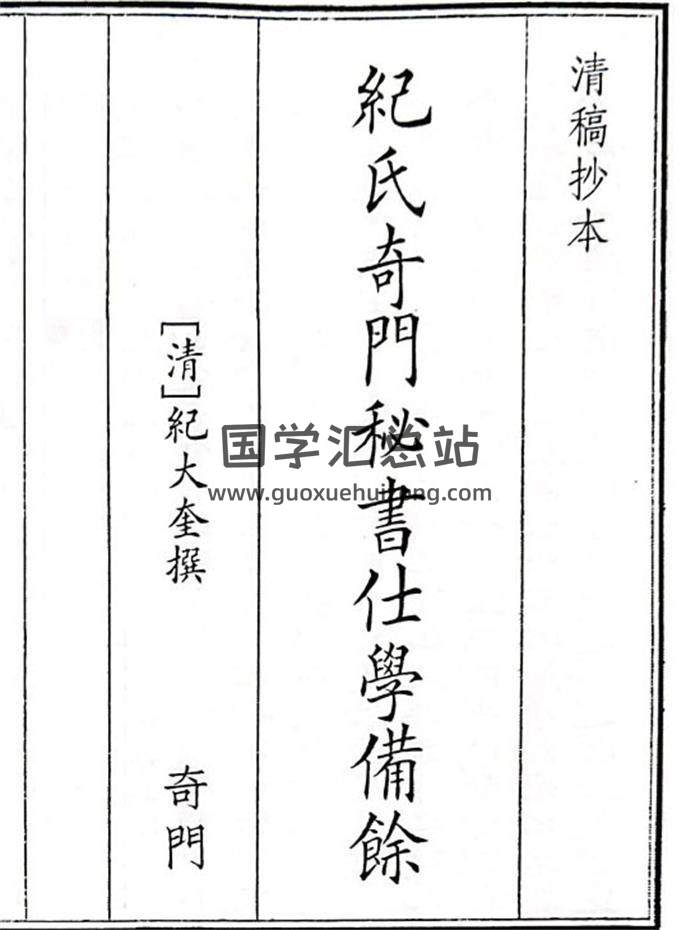 清稿抄本
紀氏奇門秘書仕學備餘
[清]紀大奎撰
奇門
国学汇总站
www.guoxuehuizong.com